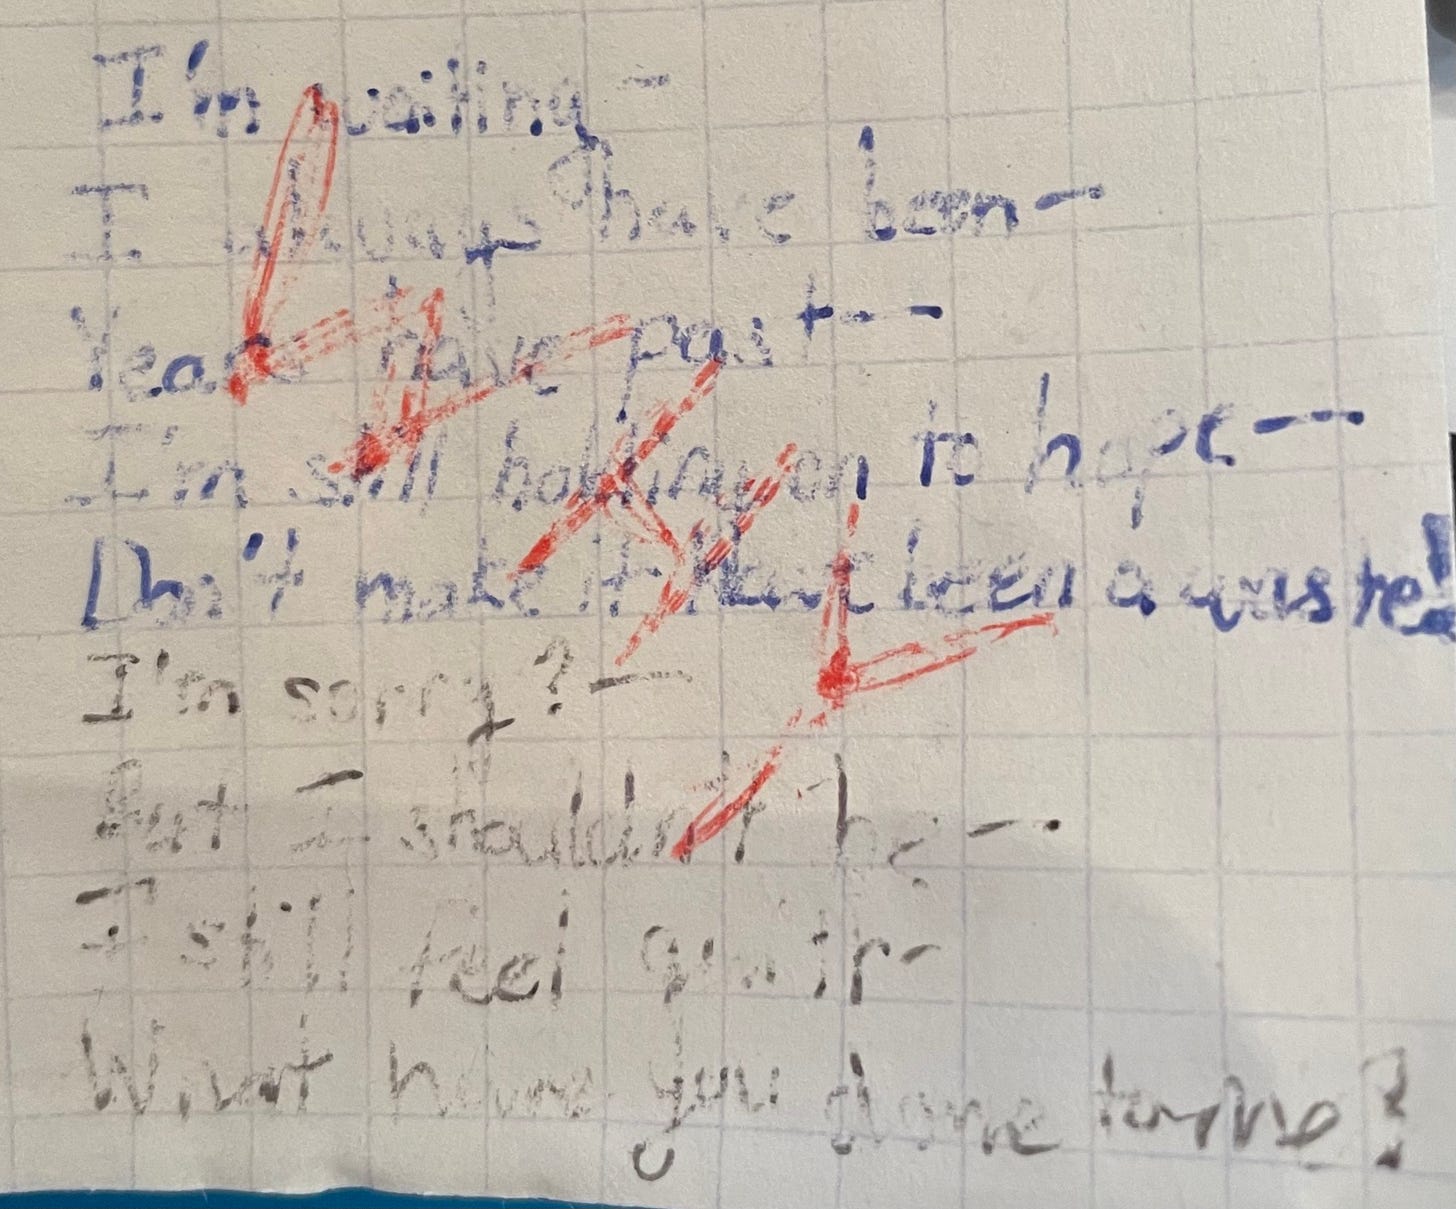 I'm waiting -
I always have been -
Years have past - -
I'm still holding on to hope -
Don't make it have been a waste!
I'm sorry? -
But I shouldn't be -
I still feel guilty -
What have you done to me?